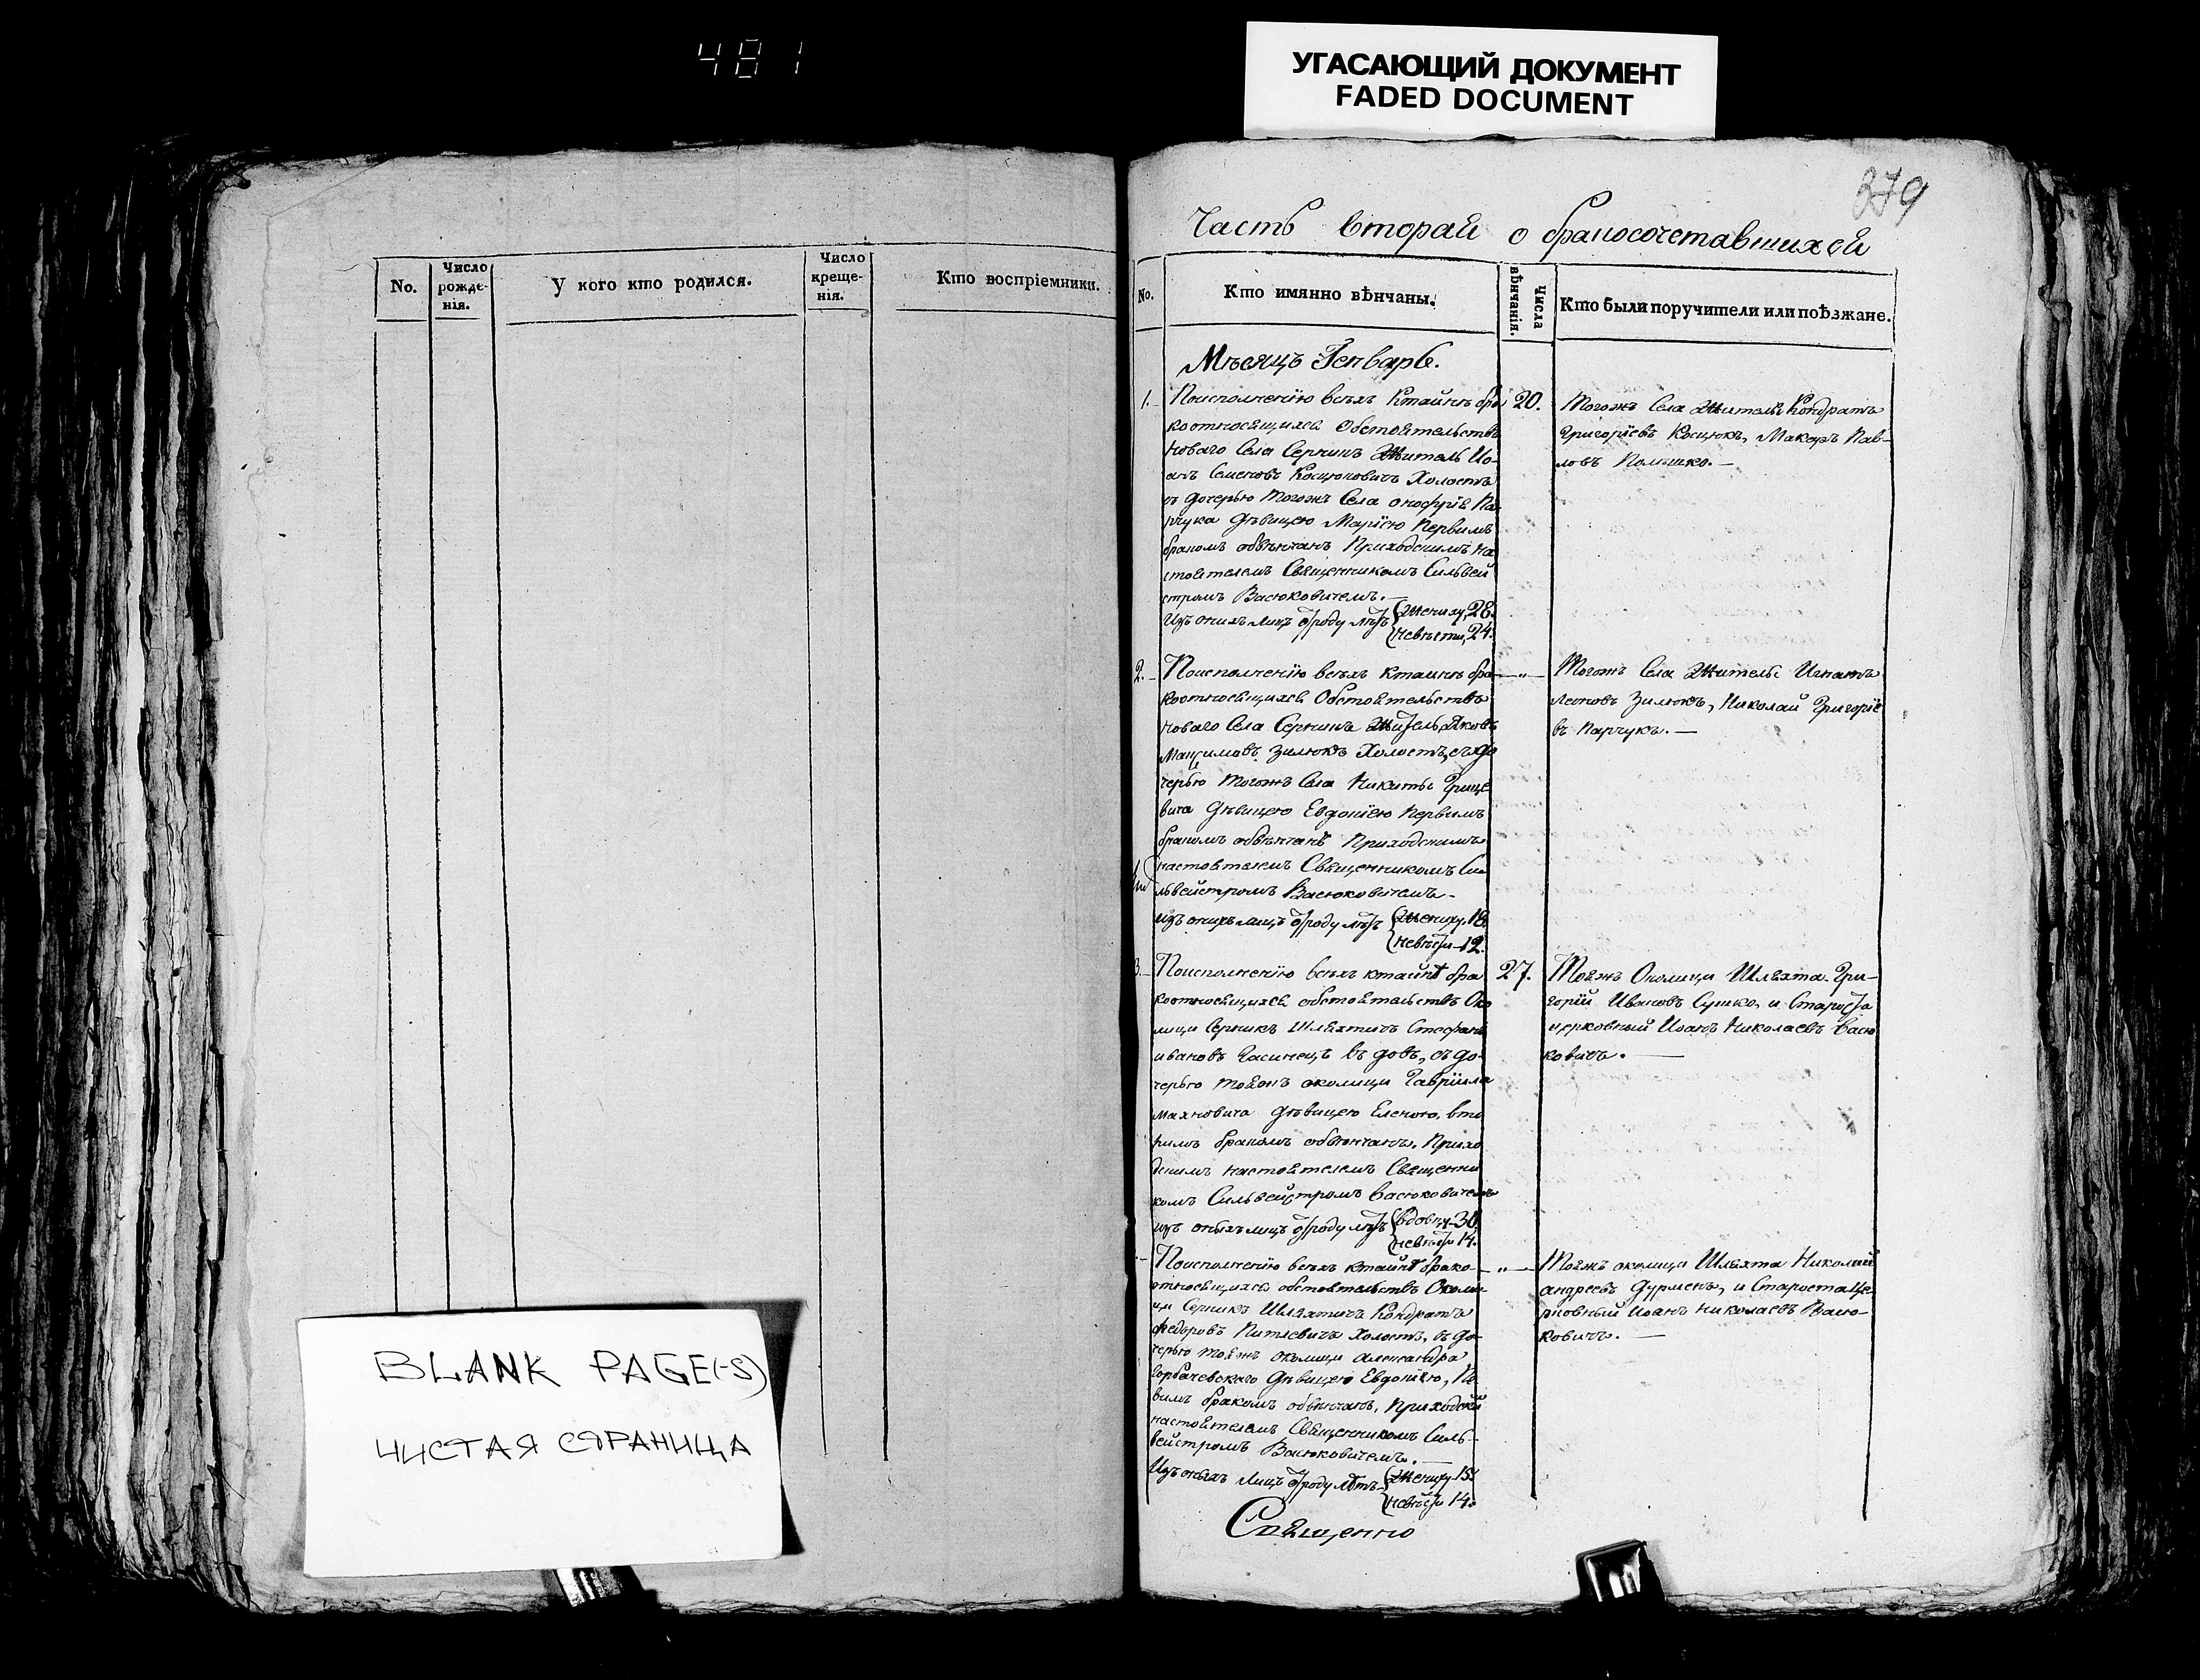 481
УГАСАЮЩИЙ ДОКУМЕНТ
FADED DOCUMENT
379
No.
Число рожде- нія.
У кого кто родился.
Число креще- нія.
Кто воспріемники.
BLANK PAGE(-S)
ЧИСТАЯ СТРАНИЦА
Часть вторая о бракосочетавшихся
No.
Кто имянно вѣнчаны.
Числа вѣнчанія.
Кто были поручители или поѣзжане.
Мѣсяцъ Генварь.
1. Поисполненію всѣхъ Ктайнѣ бра 20.
коотносящихся Обстоятельствъ
Новаго Села Серникъ Житель Іо-
анъ Семеновъ Косцюковичъ Холостъ
съ дочерью тогожъ Села Онофрія Па
рчука дѣвицею Маріею Первимъ
бракомъ обвѣнчанъ Приходскимъ на
стоятелемъ Священникомъ Сильвей
стромъ Васюковичемъ.—
Изъ онихъ лицъ отроду лѣтъ Жениху 28.
невѣсти 24.
Тогожъ Села Жители Кондратъ
Григоріевъ Косцюкъ, Макаръ Пав-
ловъ Полышко.—
2. Поисполненію всѣхъ Ктаинѣ бра — „ —
коотносящихся Обстоятельствъ
Новаго Села Серникъ Житель Яковъ
Максимовъ Зилюкъ Холостъ, съ до
черью тогожъ Села Никиты Грице
вича дѣвицею Евдокіею Первимъ
бракомъ обвѣнчанъ Приходскимъ
настоятелемъ Священникомъ Си
львейстромъ Васюковичемъ.
изъ онихъ лицъ отроду лѣтъ Жениху 18.
невѣсти 12.
Тогожъ Села Жители Игнатъ
Леоновъ Зилюкъ, Николай Григоріе
въ Парчукъ.—
3. Поисполненію всѣхъ ктайнѣ бра 27.
коотносящихся обстоятельствъ Око
лици Серникъ Шляхтичъ Стефанъ
ивановъ Часинецъ вдовъ, съ до-
черью тояжъ околици Гавріила
Махновича дѣвицею Еленою, вто
римъ бракомъ обвѣнчанъ, Прихо
дскимъ настоятелемъ Священни
комъ Сильвейстромъ Васюковичемъ
изъ оныхъ лицъ отроду лѣтъ вдовцу 30.
невѣсти 14.
Тояжъ Околици Шляхта Гри-
горій Ивановъ Сушко, и Староста
церковный Иоанъ Николаевъ Васю
ковичъ.—
Поисполненію всѣхъ ктайнѣ брако- — „ —
относящихся обстоятельствъ Околи-
ци Серникъ Шляхтичъ Кондратъ
Федоровъ Холостъ, съ до-
черью тояжъ околици Александра
Горбачевскаго дѣвицею Евдокіею, Пе
вимъ бракомъ обвѣнчанъ, Приходски
настоятелемъ Священникомъ Силь-
вейстромъ Васюковичемъ.—
Изъ оныхъ лицъ отроду лѣтъ Жениху 15.
невѣсти 14.
Тояжъ околици Шляхта Николай
андреевъ Дурменъ, и Староста Це
рковный Иоанъ Николаевъ Васю-
ковичъ.—
Священно